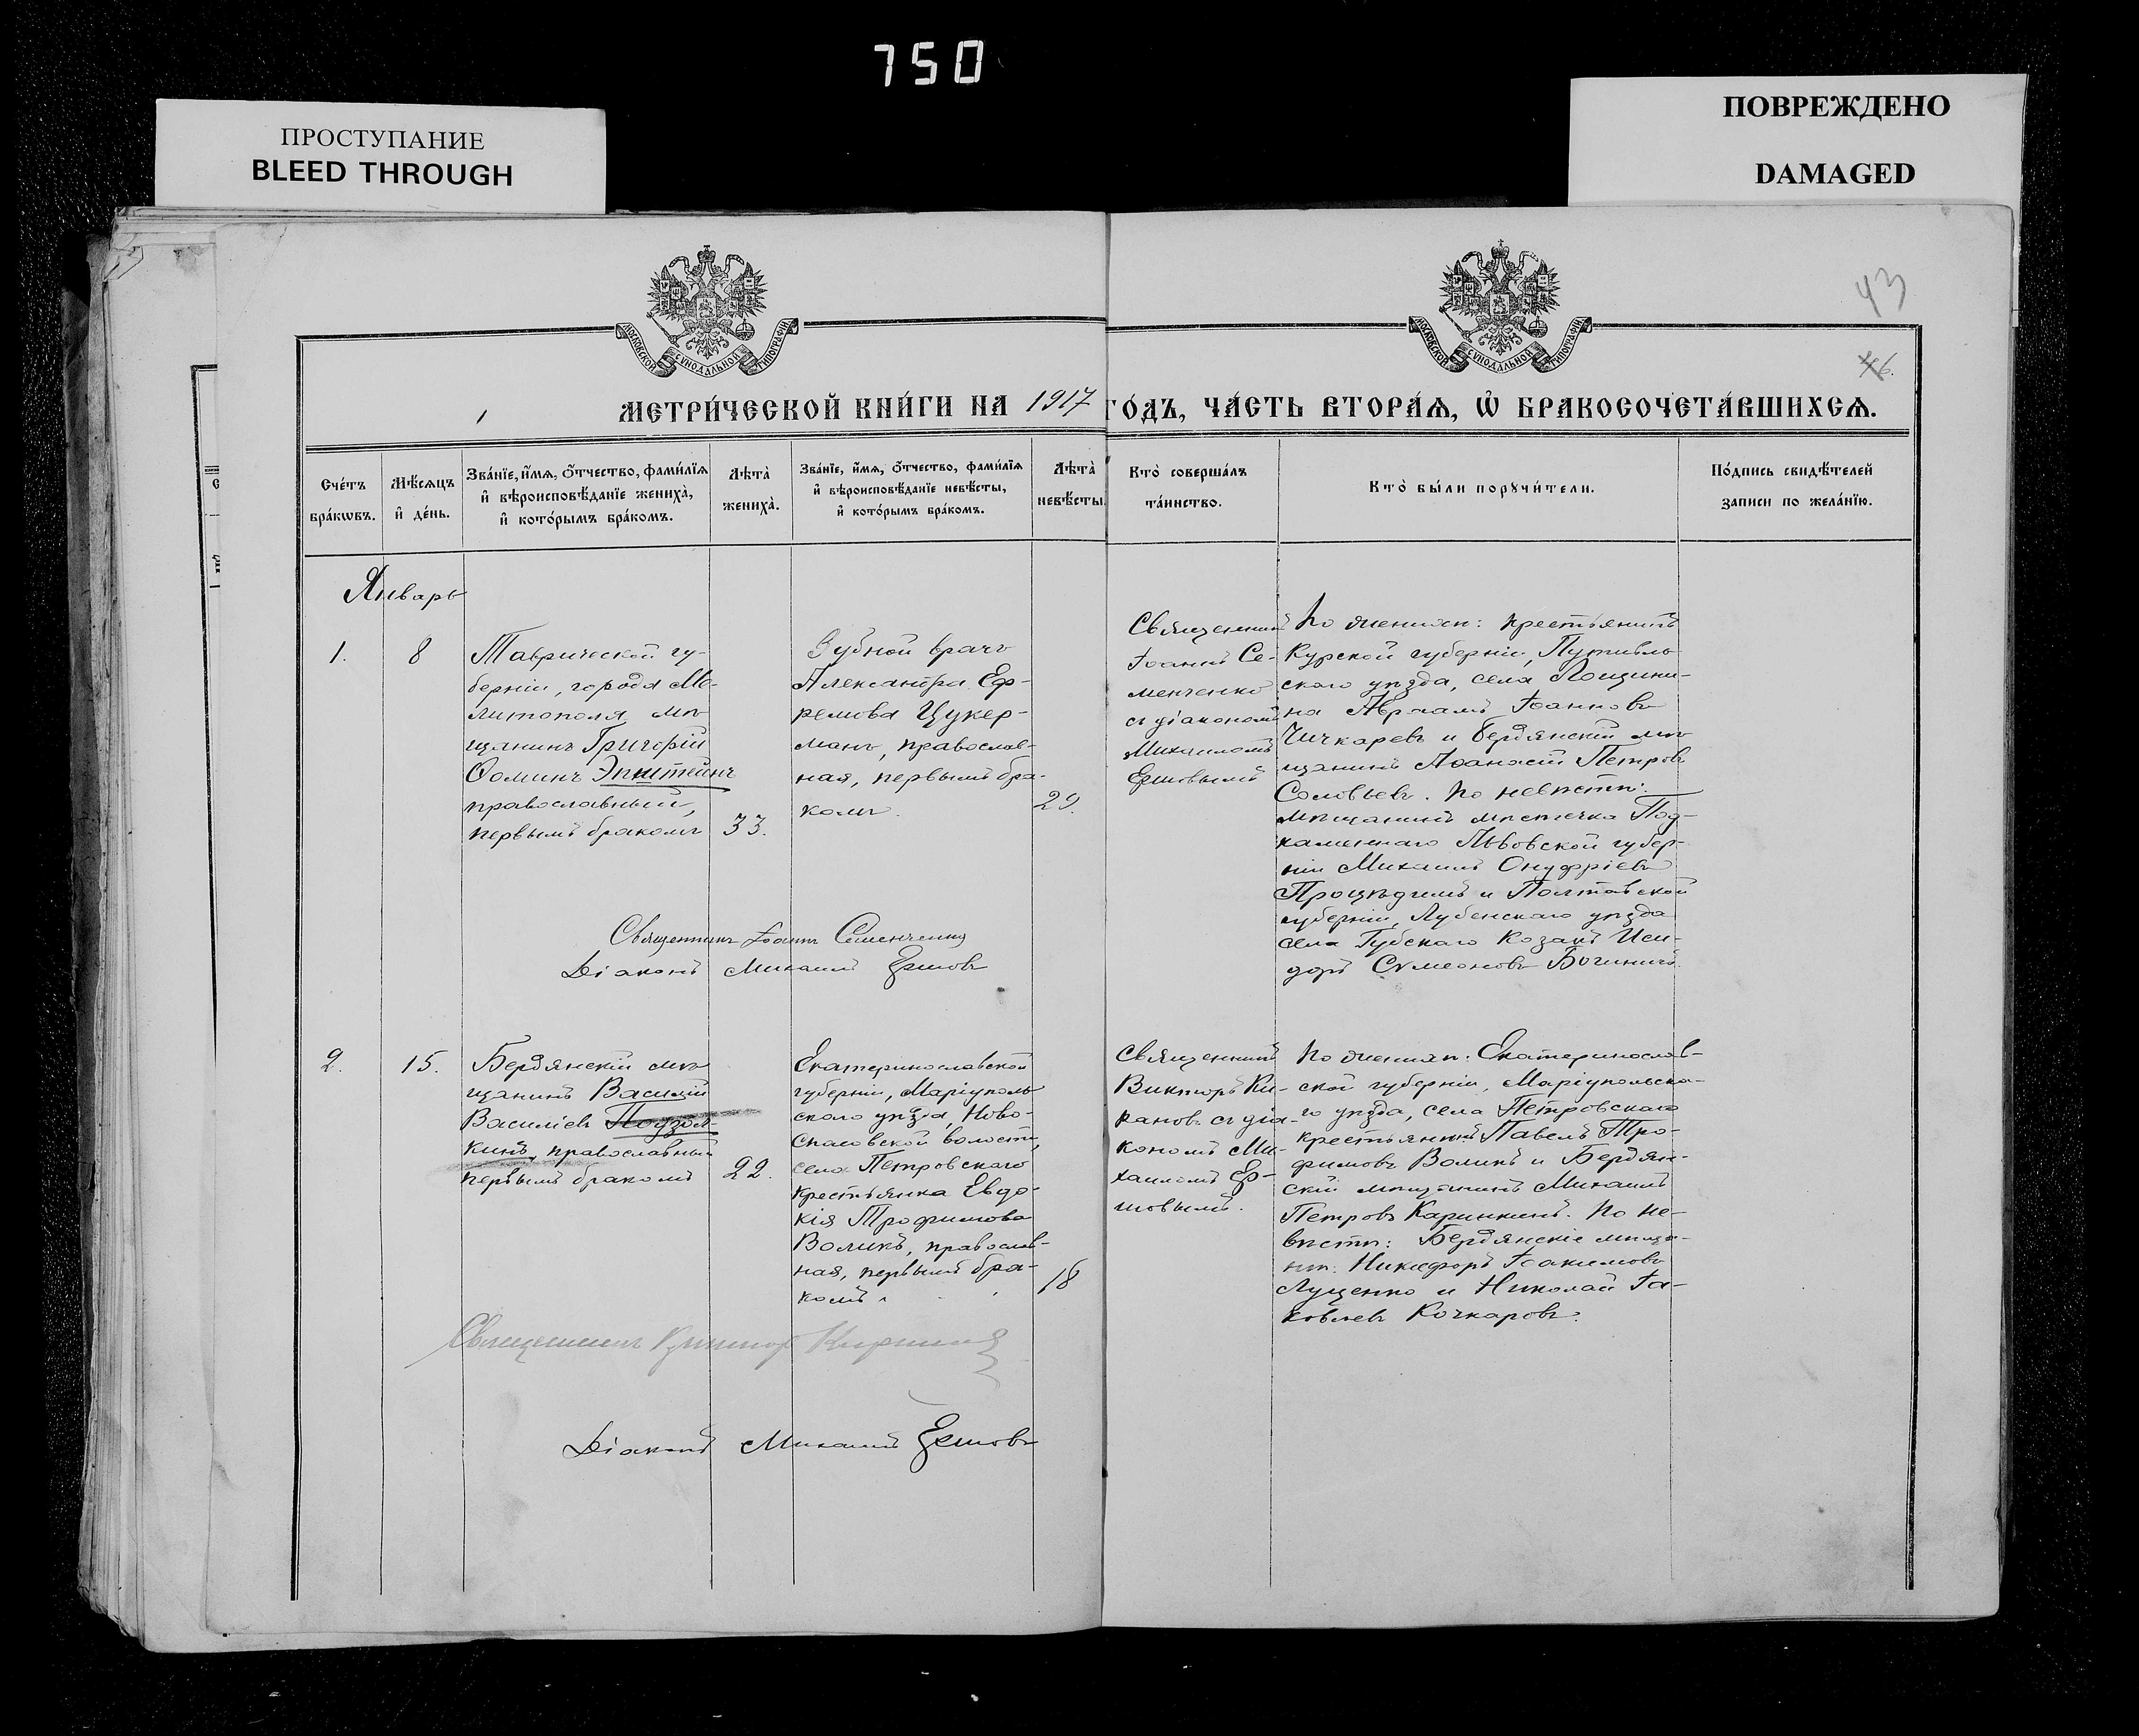 750
ПРОСТУПАНИЕ
BLEED THROUGH
ПОВРЕЖДЕНО
DAMAGED
МОСКОВСКОЙ СУНОДАЛЬНОЙ ТИПОГРАФІИ
МОСКОВСКОЙ СУНОДАЛЬНОЙ ТИПОГРАФІИ
43
46.
1
МЕТРИ́ЧЕСКОЙ КНИ́ГИ НА 1917 ГО́ДЪ, ЧА́СТЬ ВТОРА́Ѧ, Ѡ҆ БРАКОСОЧЕТА́ВШИХСѦ.
Сче́тъ
бра́кѡвъ.
Мѣ́сѧцъ
и҆ де́нь.
Зва́нїе, и҆́мѧ, ѻ҆́тчество, фами́лїѧ
и҆ вѣроисповѣ́данїе жениха̀,
и҆ кото́рымъ бра́комъ.
Лѣта̀
жениха̀.
Зва́нїе, и҆́мѧ, ѻ҆́тчество, фами́лїѧ
и҆ вѣроисповѣ́данїе невѣ́сты,
и҆ кото́рымъ бра́комъ.
Лѣта̀
невѣ́сты.
Кто̀ соверша́лъ
та́инство.
Кто̀ бы́ли порꙋчи́тели.
По́дпись свидѣ́телей
записи по жела́нїю.
Январь
1.
8
Таврической гу-
берніи, города Ме-
литополя мѣ-
щанинъ Григорій
Ѳоминъ Эпштейнъ
православный,
первымъ бракомъ
33.
Зубной врачъ
Александра Еф-
ремова Цукер-
манъ, православ-
ная, первымъ бра-
комъ.
29.
Священникъ
Іоаннъ Се-
менченко
съ діакономъ
Михаиломъ
Ершовымъ
По женихѣ: крестьянинъ
Курской губерніи, Путивль-
скаго уѣзда, села
на Авраамъ Іоанновъ
Чичкаревъ и Бердянскій мѣ-
щанинъ Аѳанасій Петровъ
Соловьевъ. По невѣстѣ:
мѣщанинъ мѣстечка Под-
каменнаго Львовской губер-
ніи Михаилъ Онуфріевъ
и Полтавской
губерніи, Лубенскаго уѣзда
села Губскаго козакъ Иси-
доръ Сѵмеоновъ
Священникъ Іоаннъ Семенченко
Діаконъ Михаилъ Ершовъ
2.
15.
Бердянскій мѣ-
щанинъ Василій
Василіевъ Подзол-
кинъ, православный
первымъ бракомъ
22.
Екатеринославской
губерніи, Маріуполь
скаго уѣзда, Ново-
спасовской волости,
села Петровскаго
крестьянка Евдо-
кія Трофимова
Воликъ, православ-
ная, первымъ бра-
комъ.
18
Священникъ
Викторъ Ки-
рановъ съ діа-
кономъ Ми-
хаиломъ Ер-
шовымъ.
По женихѣ: Екатеринослав-
ской губерніи, Маріупольска-
го уѣзда, села Петровскаго
крестьянинъ Павелъ Тро-
фимовъ Воликъ и Бердян-
скій мѣщанинъ Михаилъ
Петровъ Каринкинъ. По не-
вѣстѣ: Бердянскіе мѣща-
не: Никифоръ Іоакимовъ
Лущенко и Николай Іа-
ковлевъ Кочкаровъ.
Священникъ Викторъ Кирановъ
Діаконъ Михаилъ Ершовъ